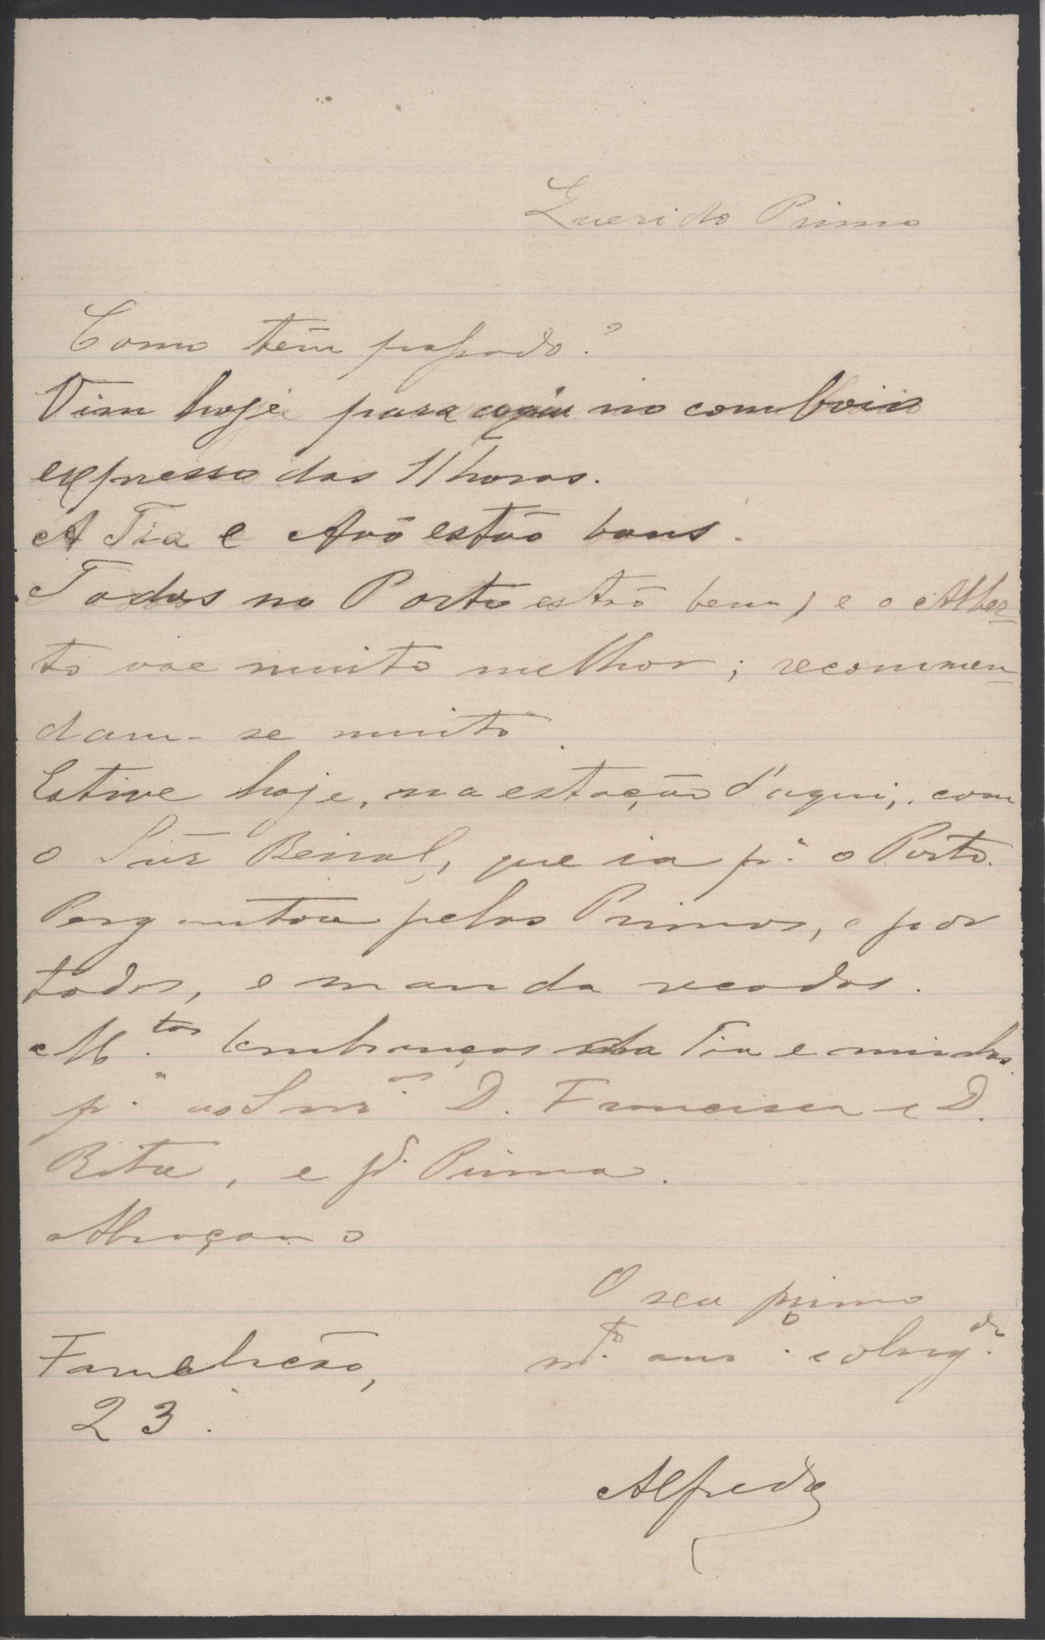 Querido Primo
Como têm passado?
Vim hoje para aqui no comboio
expresso das 11 horas.
A Tia e Avô estão bons.
Todos no Porto estão bem, e o Alber-
to vae muito melhor; recommen-
dam-se muito.
Estive hoje, na estação d'aqui, com
o Snr, que ia p.ª o Porto.
Perguntou pelos Primos, e por
todos, e manda recados.
M.tas lembranças da Tia e minhas
p.ª as Snr.as D. Francisca e D.
Rita, e p.ª Prima.
Abraça-o
O seu primo
m.to am.o e obrg.do
Famalicão,
23.
Alfredo